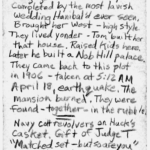 completed by the most lavish
wedding Hannibal ever seen,
Brought her West - high style.
They lived yonder - Tom built
that house. Raised kids here,
Later he built a Nob Hill palace.
They came back to this plot
in 1906 - taken at 5:12 AM
April 18, earthquake. The
mansion burned. They were
found - together - in the rubble.
Navy Colt revolvers on Huck's
casket. Gift of Judge T
"Matched set - but so are you"